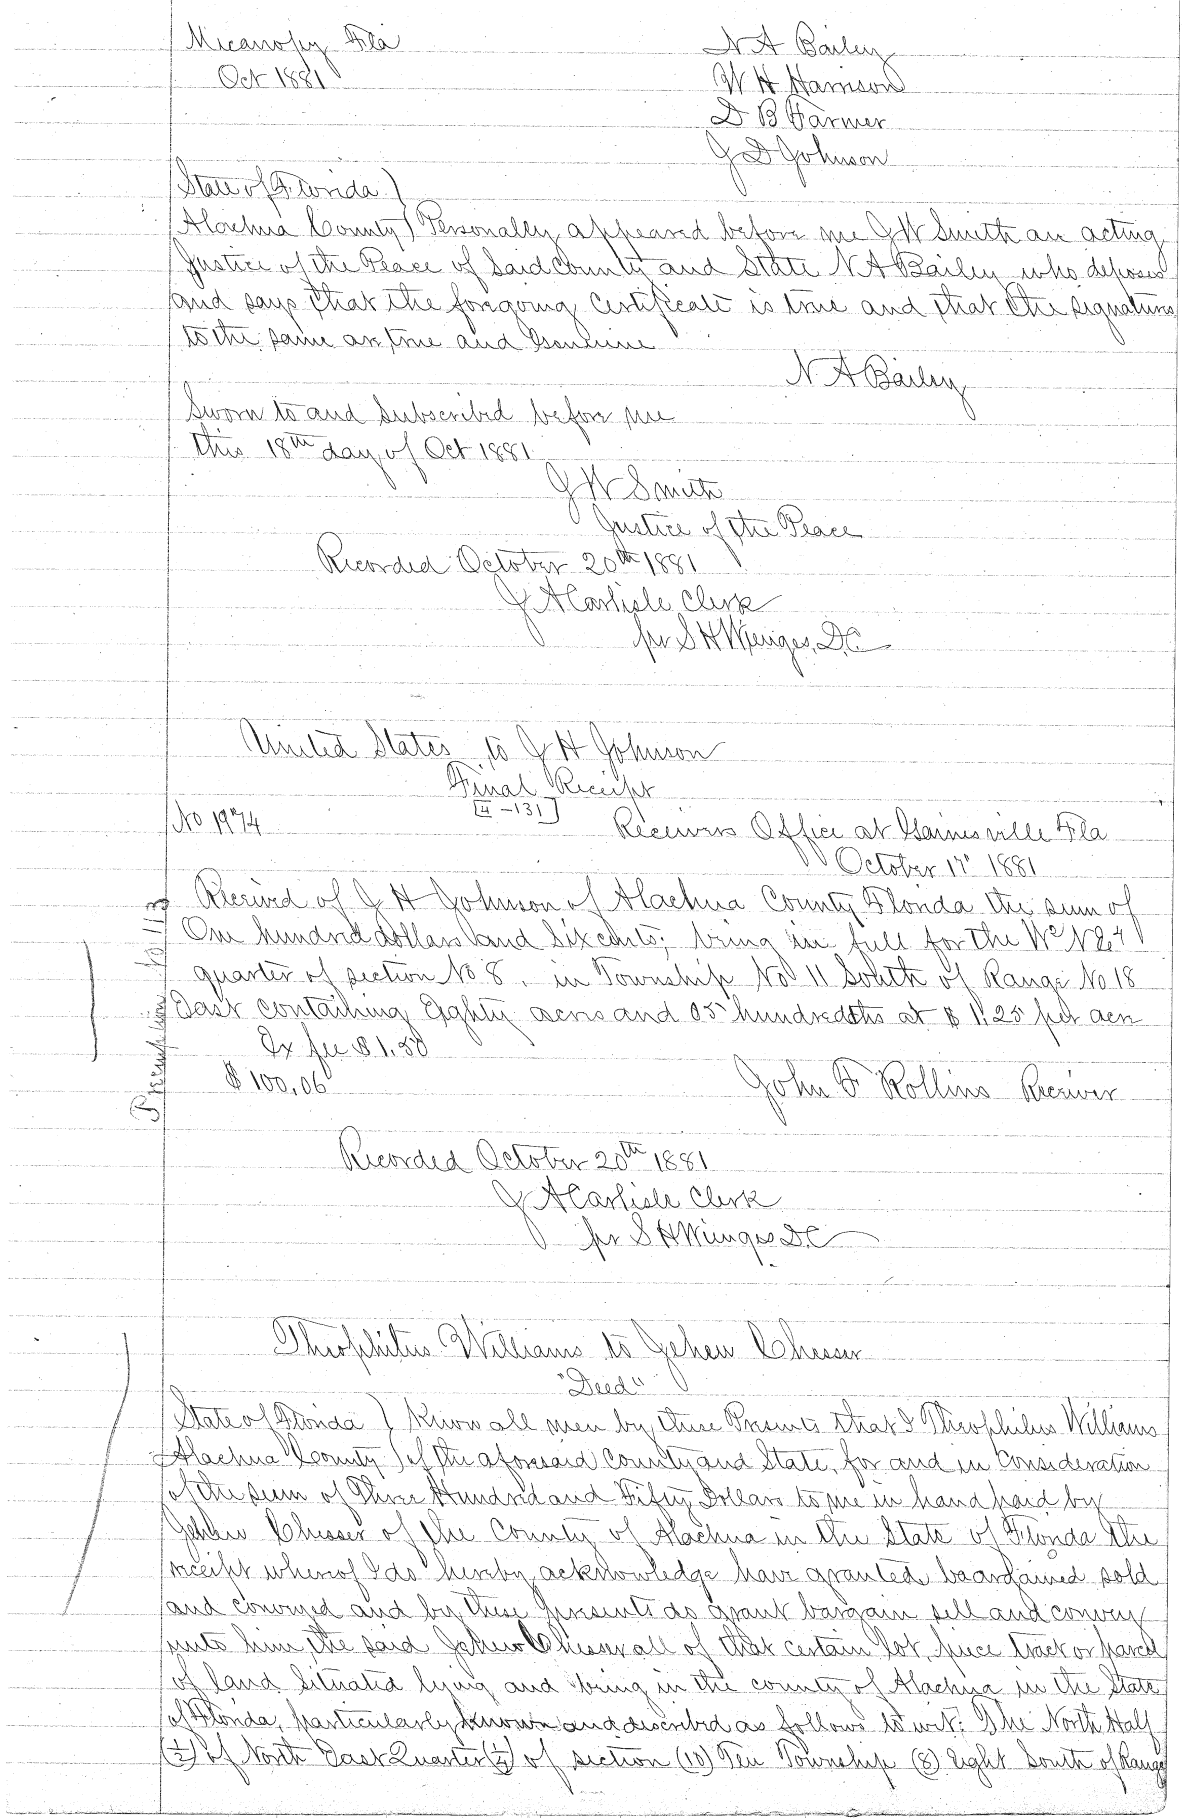 Micanopy Fla
N A Bailey
Oct 1881
W H Harrison
D B Farmer
J D Johnson
State of Florida )
Alachua County ) Personally appeared before me J W Smith an acting
Justice of the Peace of Said County and State N A Bailey who deposes
and says that the foregoing Certificate is true and that the signatures
to the same are true and Genuine
N A Bailey
Sworn to and Subscribed before me
this 18th day of Oct 1881
J W Smith
Justice of the Peace
Recorded October 20th 1881
J A Carlisle Clerk
per S H Wienges, D.C
United States to J H Johnson
Final Receipt
[4-131]
No 1974
Receivers Office at Gainesville Fla
October 17" 1881
Preemption No 113
Received of J H Johnson of Alachua County Florida the sum of
One hundred dollars and Six cents; being in full for the W2 NE4
quarter of section No 8. in Township No 11 South of Range No 18
East containing Eighty acres and 05 hundredths at $ 1.25 per acre
Ex fee $1.50
$ 100.06
John F Rollins Receiver
Recorded October 20th 1881
J A Carlisle Clerk
per S H Wienges D.C
Theophilus Williams to Jehew Chesser
"Deed"
State of Florida ) Know all men by these Presents that I Theophilus Williams
Alachua County ) of the aforesaid County and State, for and in Consideration
of the sum of Three Hundred and Fifty Dollars to me in hand paid by
Jehew Chesser of the County of Alachua in the State of Florida the
receipt whereof I do hereby acknowledge have granted baargained sold
and conveyed and by these presents do grant bargain sell and convey
unto him the said Jehew Chesser all of that certain lot piece tract or parcel
of land Situated lying and being in the county of Alachua in the State
of Florida, particularly known and described as follows to wit: The North Half
(½) of North East Quarter (¼) of section (10) Ten Township (8) Eight South of Range